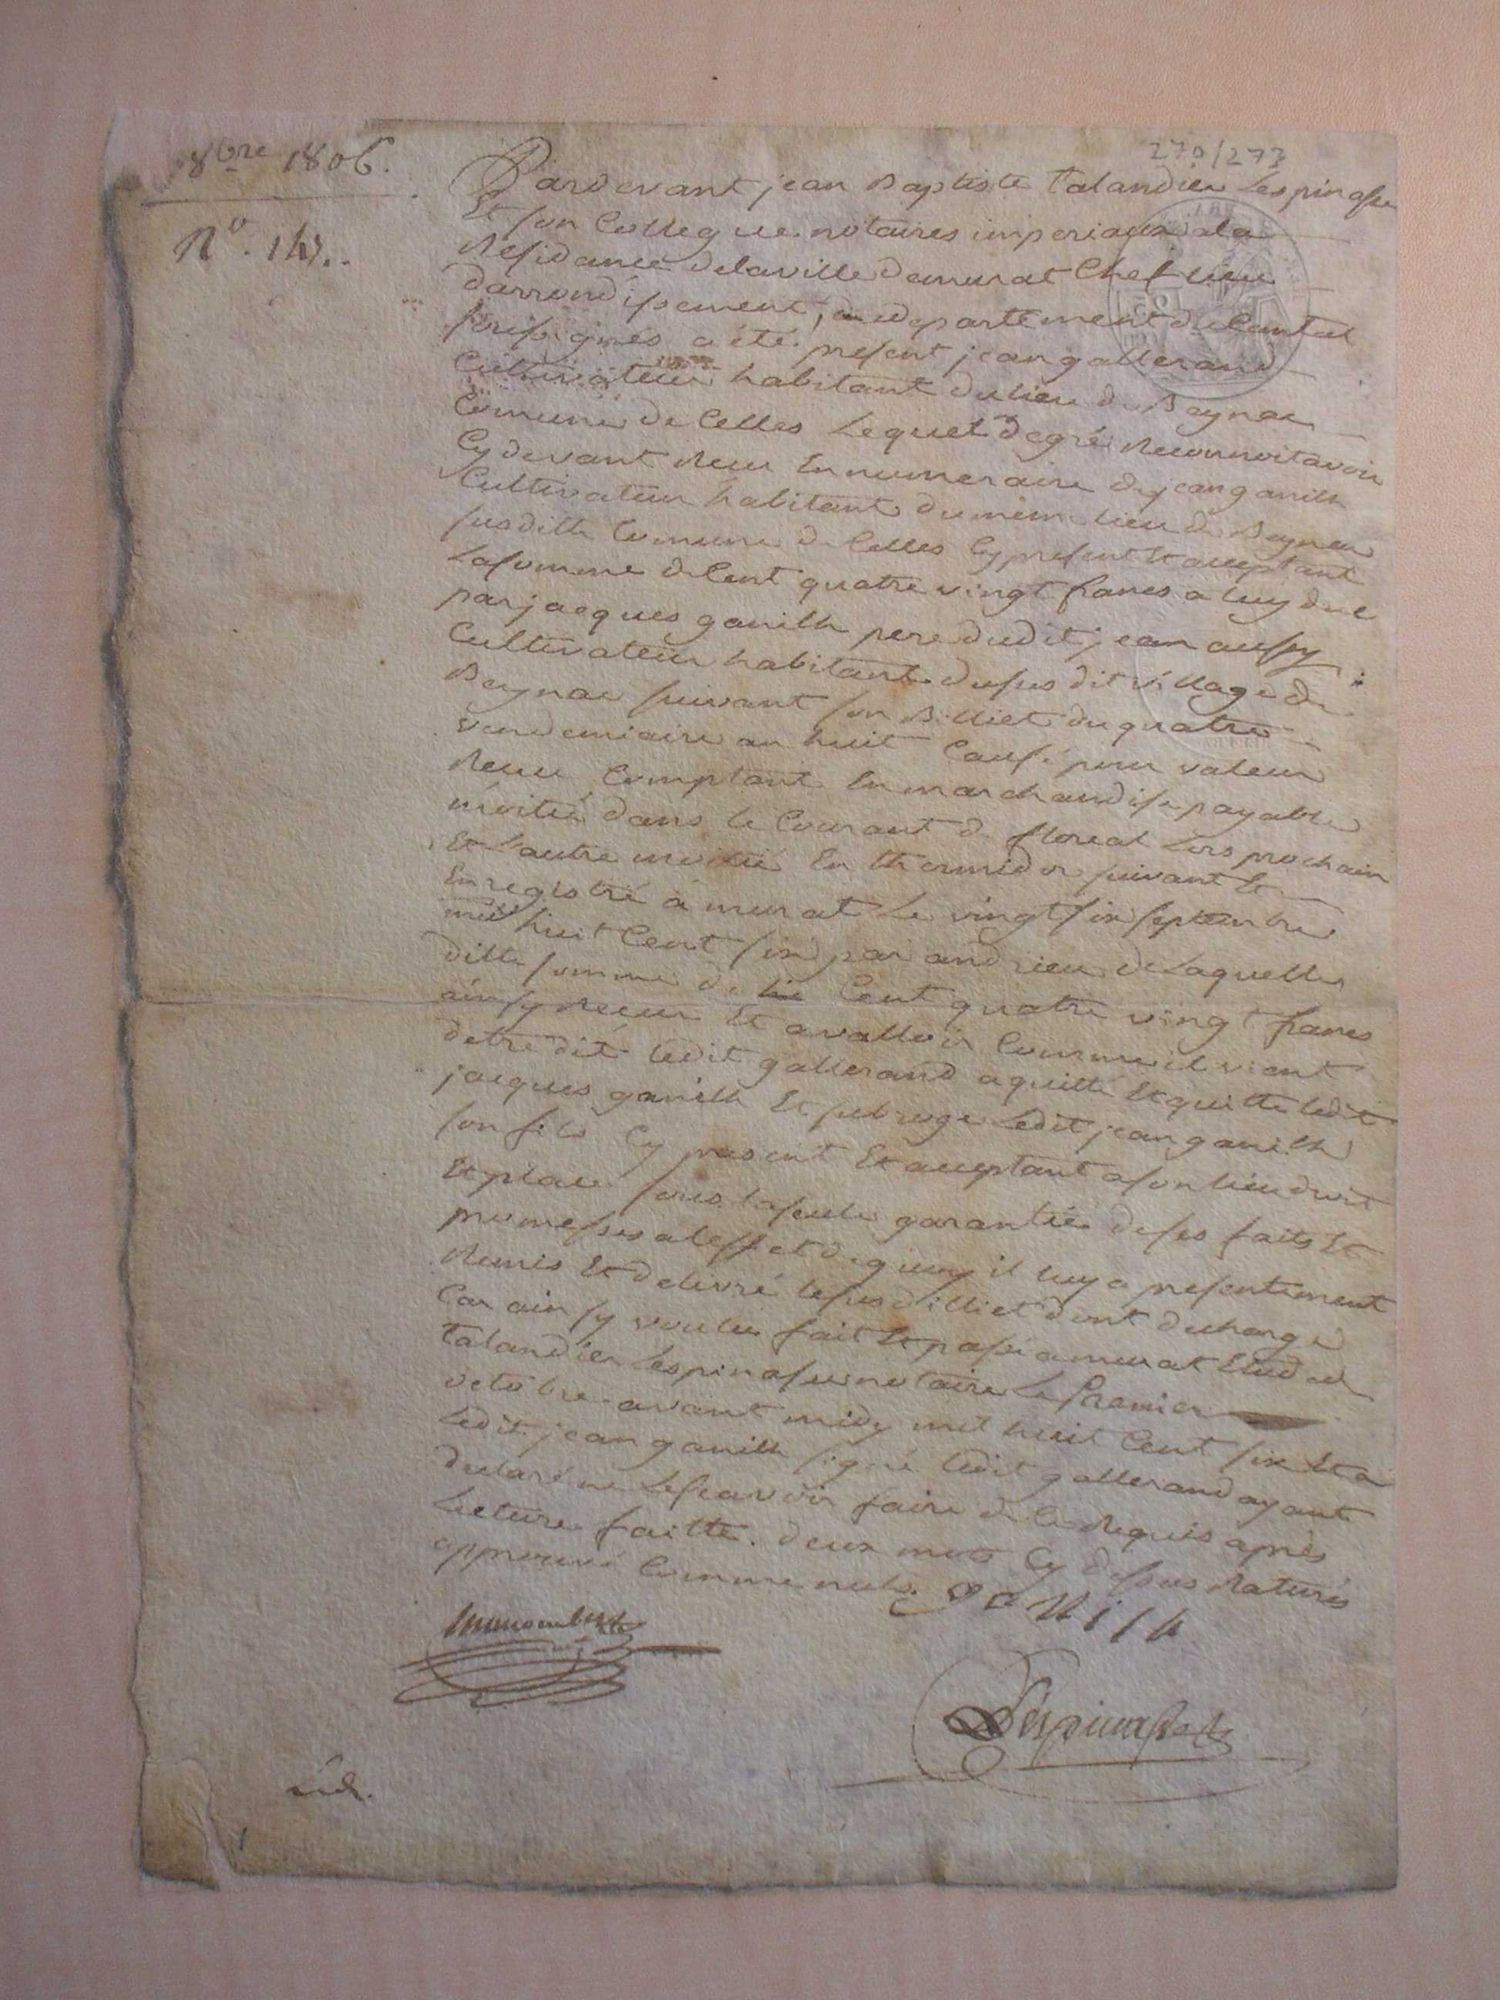 8bre 1806.
270/273
Nº. 147..
Pardevant jean Baptiste Talandier Lespinasse
Et son Collegue notaires imperiaux ala
Residance delaville demurat Chef lieu
darrondissement, du departement du Cantal
soussignés a été present jean gallerand
Cultivateur habitant du lieu de Beynac
Comune de Celles Lequel degré Reconnoit avoir
Cy devant Receu En numeraire de jean ganilh
Cultivateur habitant du meme lieu de Beynac
susditte Comune de Celles Cy present Et acceptant
La somme de Cent quatre vingt francs a luy due
par jacques ganilh pere dudit jean aussy
Cultivateur habitant du sus dit village de
Beynac suivant son Billiet du quatre
vendemiaire an huit Causé pour valeur
Receu Comptant En marchandise payable
moitié dans le Courant de floreal Lors prochain
Et Lautre moitié En thermidor suivant Et
Enregistré a murat Le vingt six septembre
mil huit Cent six par andrieu de Laquelle
ditte somme de Cent quatre vingt francs
ainsy Receue Et avalloir Comme il vient
detre dit ledit gallerand aquitté Et quitte ledit
jacques ganilh Et subroge Ledit jean ganilh
son fils Cy present Et acceptant a son lieu droit
Et place sous la seule garantie de ses faits Et
promesses a leffet de quoy il luy a presentement
Remis Et delivré le susd billiet dont decharge
Car ainsy voulu fait Et passé a murat Etude de
Talandier Lespinasse notaire Le Premier
octobre avant midy mil huit Cent six Et a
Ledit jean ganilh signé ledit gallerand ayant
declaré ne Le scavoir faire de Ce Requis après
Lecture faitte. deux mots Cy dessus Raturés
approuvé Comme nuls. ganilh
Lespinasse